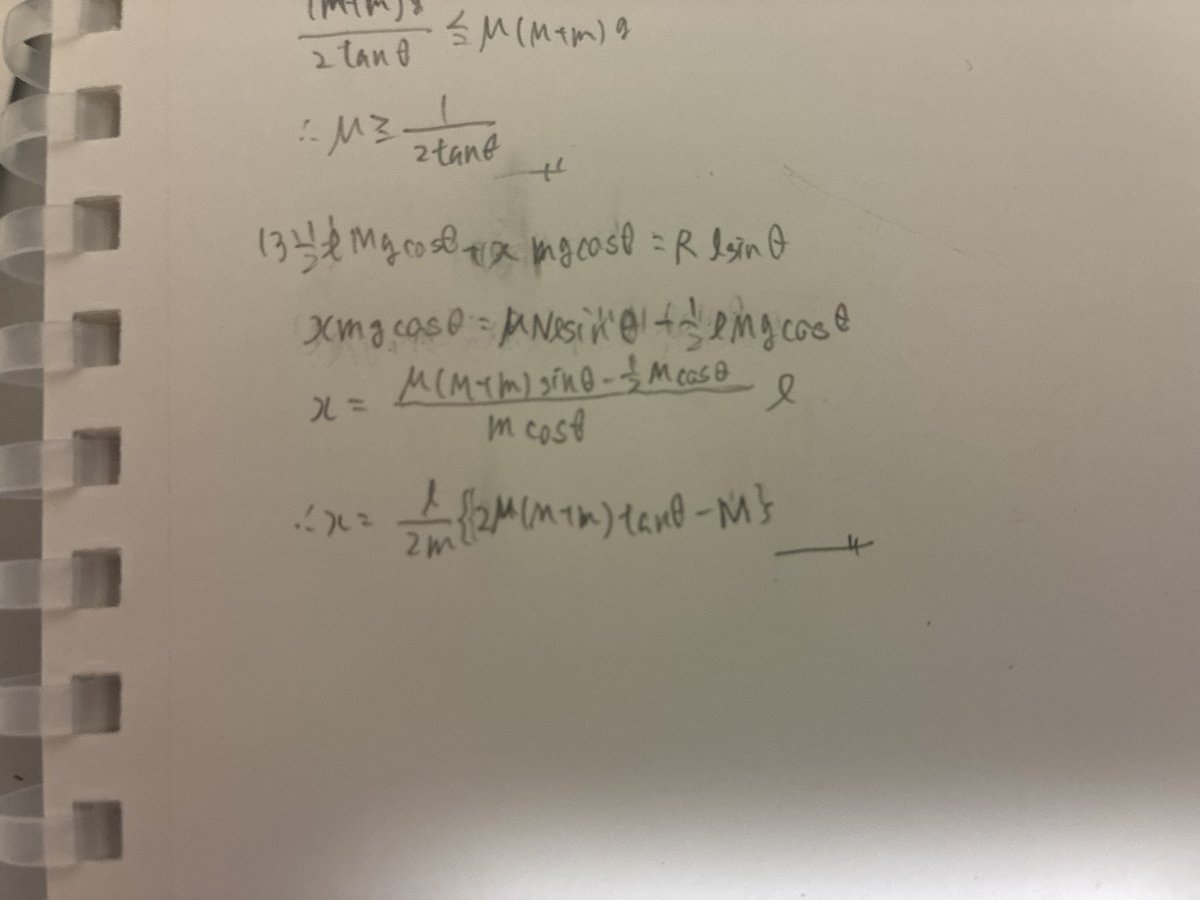 (M+m)g/2tanθ ≦ μ(M+m)g
∴ μ ≧ 1/2tanθ
(3) 1/2 l Mg cosθ + x mg cosθ = R l sinθ
x mg cosθ = μN l sinθ + 1/2 l Mg cosθ
x = μ(M+m) sinθ - 1/2 M cosθ / m cosθ l
∴ x = l/2m {2μ(M+m) tanθ - M}